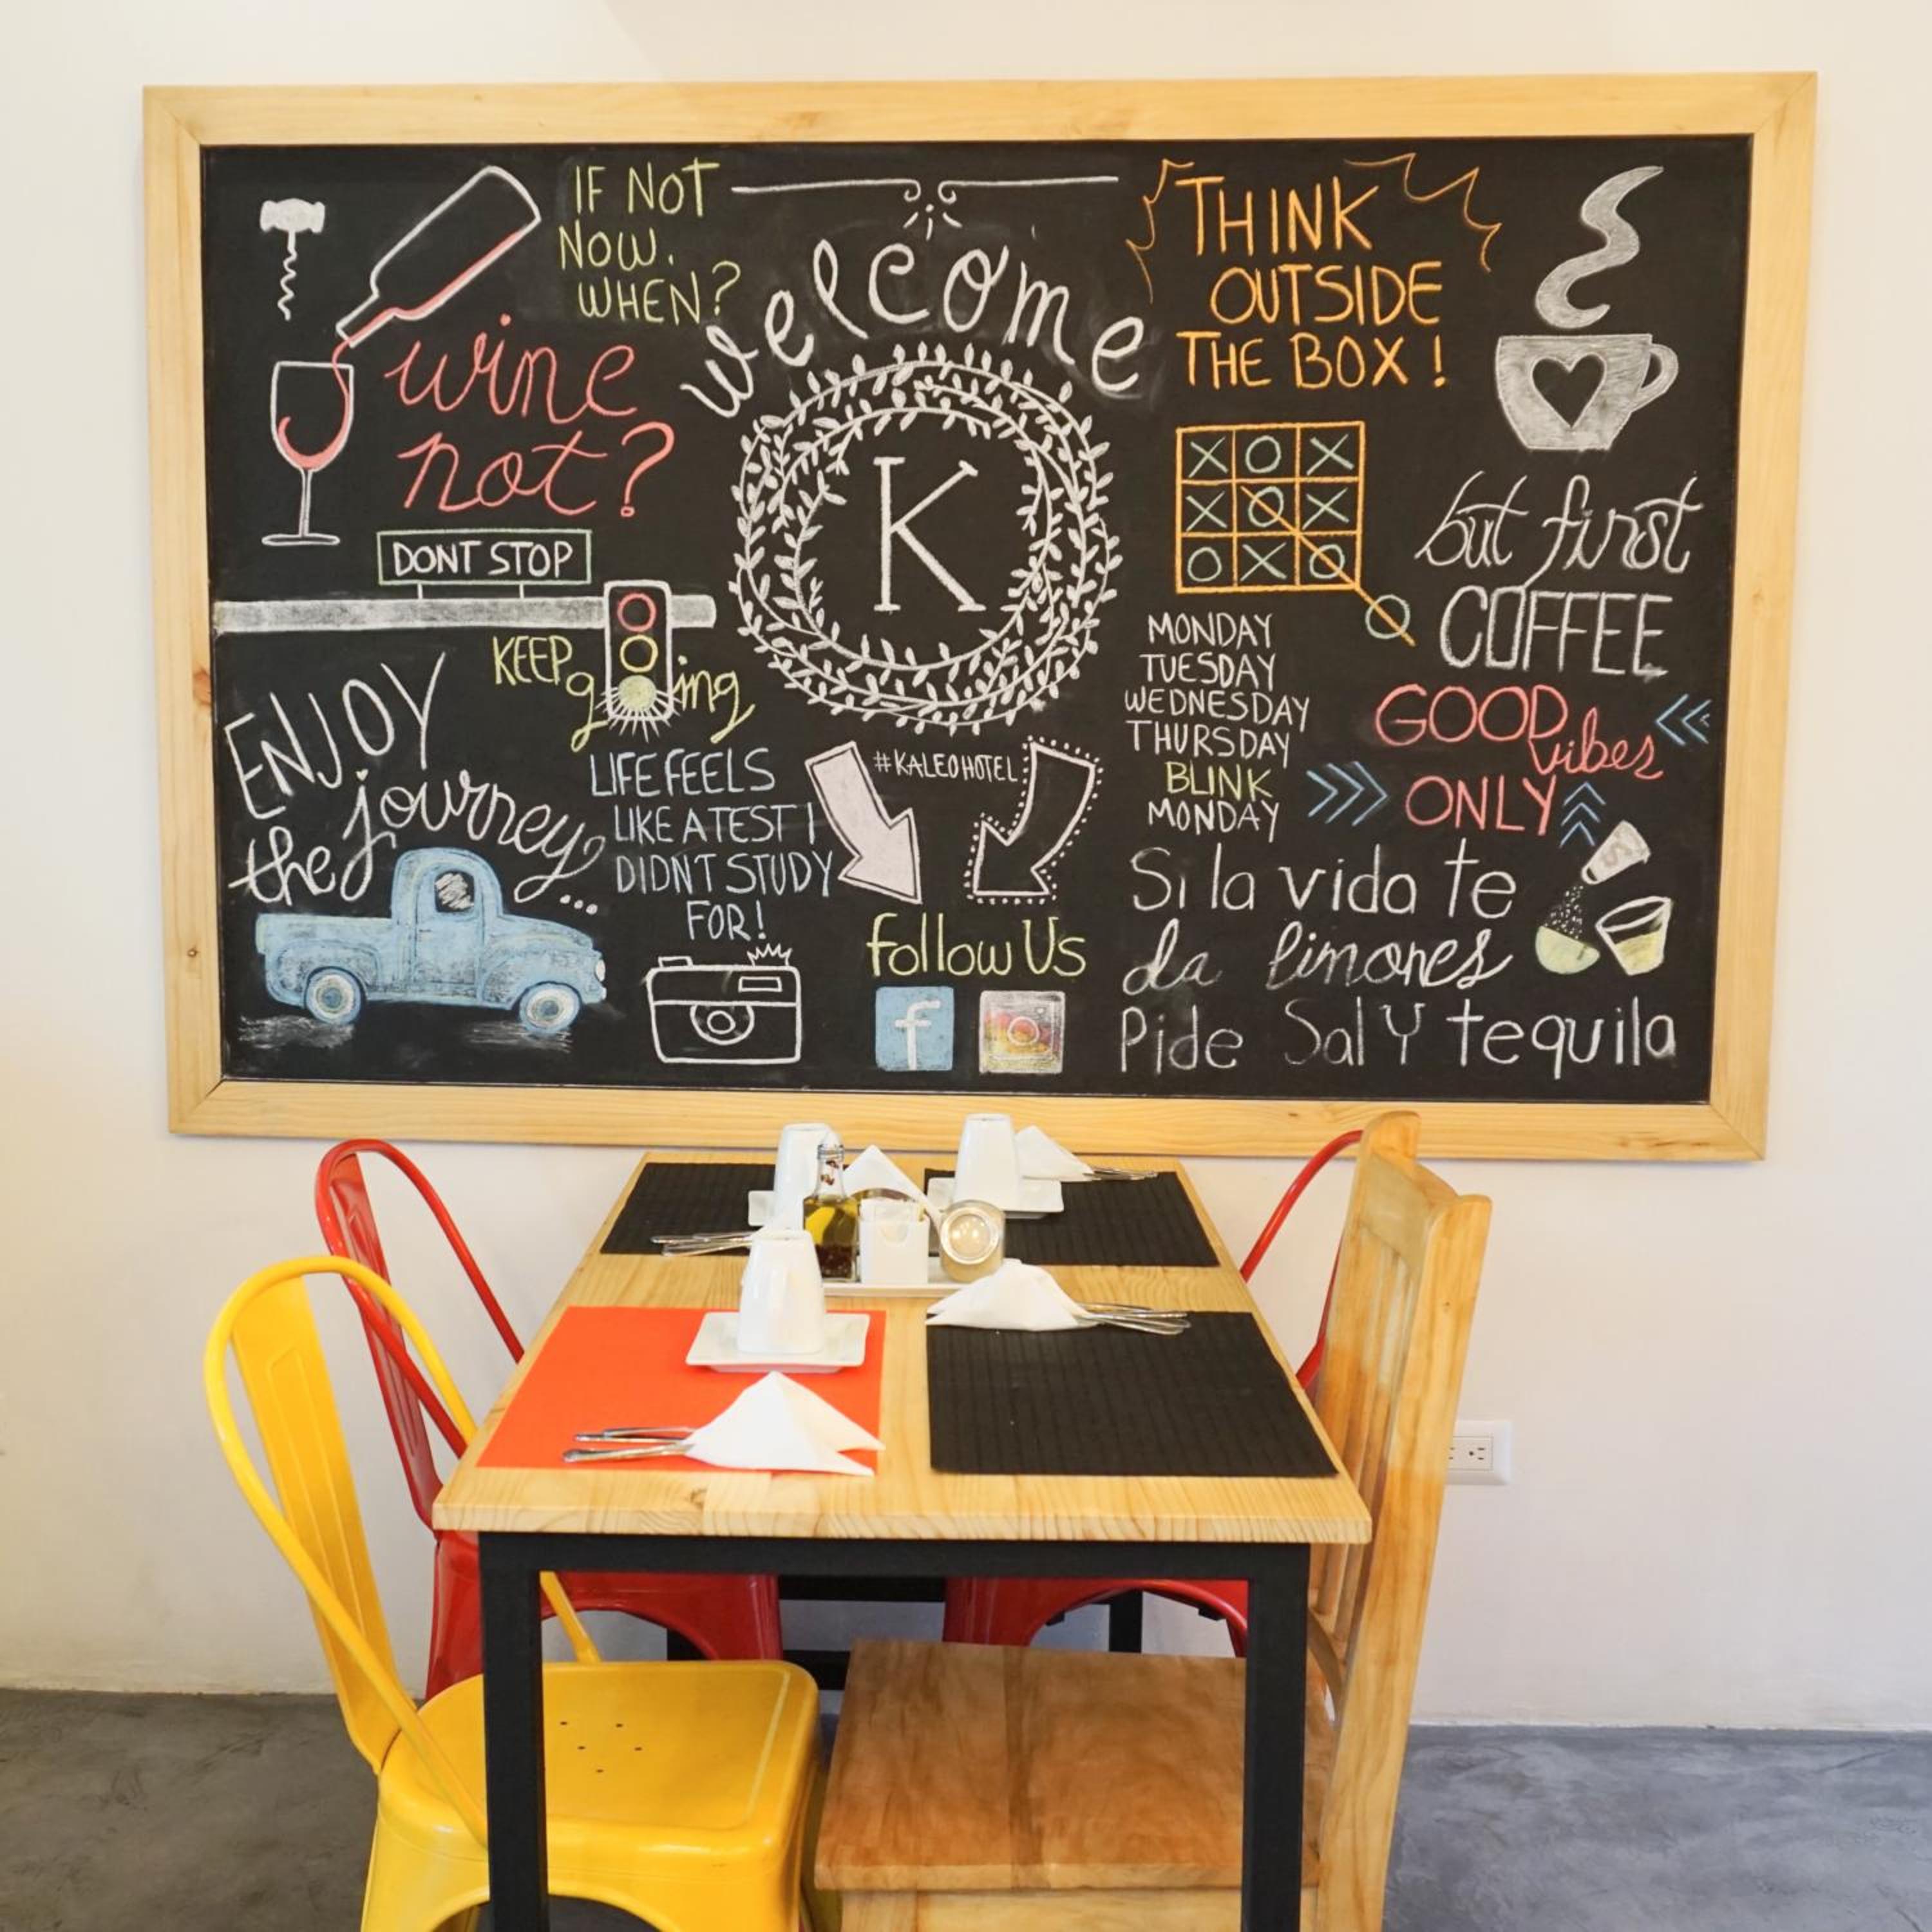 IF NOT
NOW.
WHEN?
wine
not?
DONT STOP
KEEP
going
ENJOY
the journey...
LIFE FEELS
LIKE A TEST I
DIDNT STUDY
FOR!
welcome
K
#KALEOHOTEL
Follow Us
f
THINK
OUTSIDE
THE BOX!
X O X
X O X
O X O
O
but first
COFFEE
MONDAY
TUESDAY
WEDNESDAY
THURSDAY
BLINK
MONDAY
GOOD vibes
ONLY
Si la vida te
da limones
Pide Sal Y tequila
S